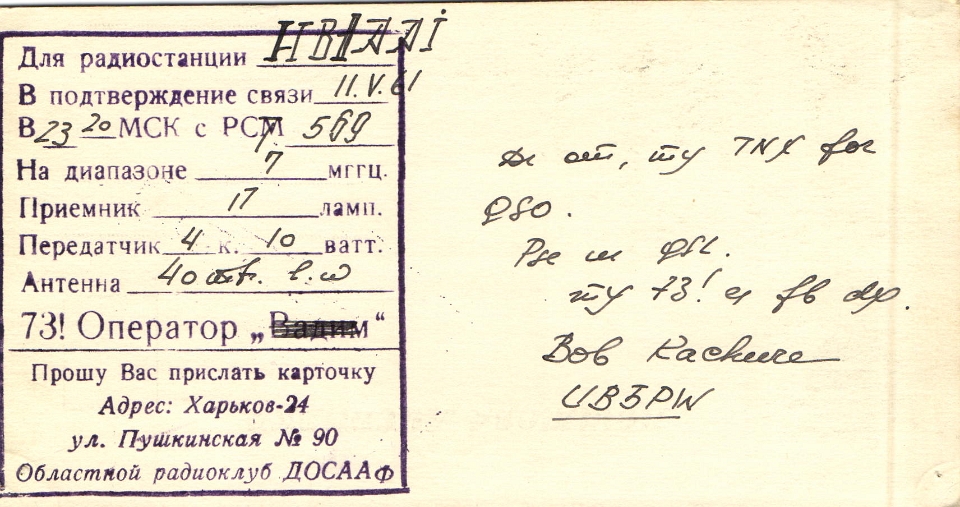 Для радиостанции HB1AAI
В подтверждение связи 11.V.61
В 23 20 МСК с РСТ 569
На диапазоне 7 мггц.
Приемник 17 ламп.
Передатчик 4 к. 10 ватт.
Антенна 40 l.w
73! Оператор „Вадим“
Прошу Вас прислать карточку
Адрес: Харьков-24
ул. Пушкинская № 90
Областной радиоклуб ДОСААФ
Dr om, my TNX for
QSO.
Pse ur QSL.
my 73! es fb dx.
Bob
UB5PW